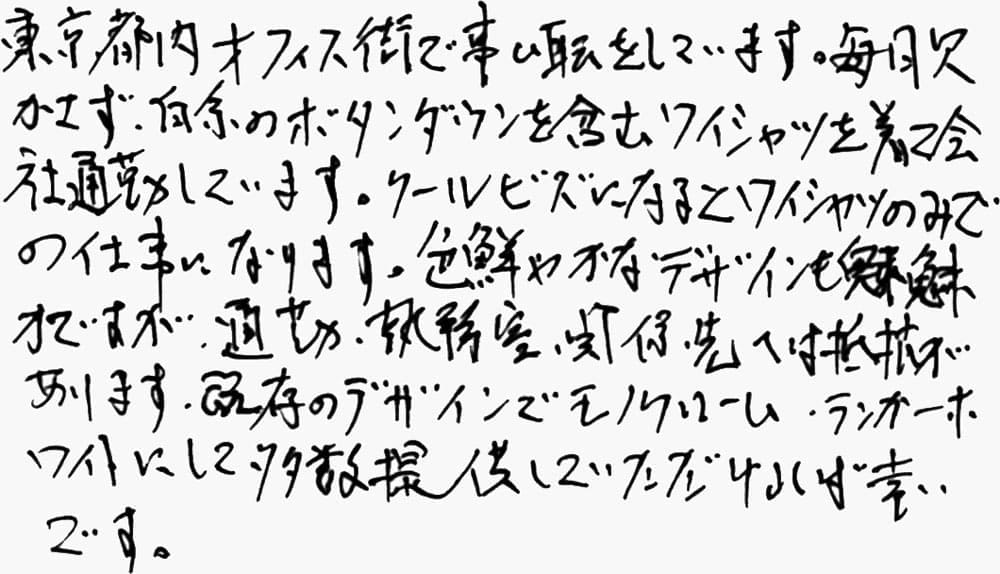 東京都内オフィス街で事ム職をしています。毎日欠
かさず、白系のボタンダウンを含むワイシャツを着て会
社通勤しています。クールビズになるとワイシャツのみで
の仕事になります。色鮮やかなデザインも魅
れですが、通勤、執務室、取得先へは抵抗が
あります。既存のデザインでモノクローム、ランガーホ
ワイトにして多数提供していただければ幸い
です。